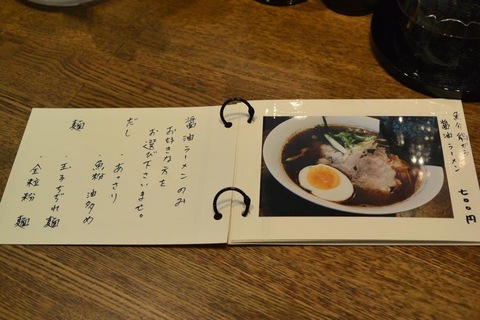 醤油ラーメンのみ
お好きな方を
お選び下さいませ。
だし
・あっさり
・魚粉 油多め
麺
・玉子ちぢれ麺
・全粒粉 麺
醤油ラーメン
七〇〇円